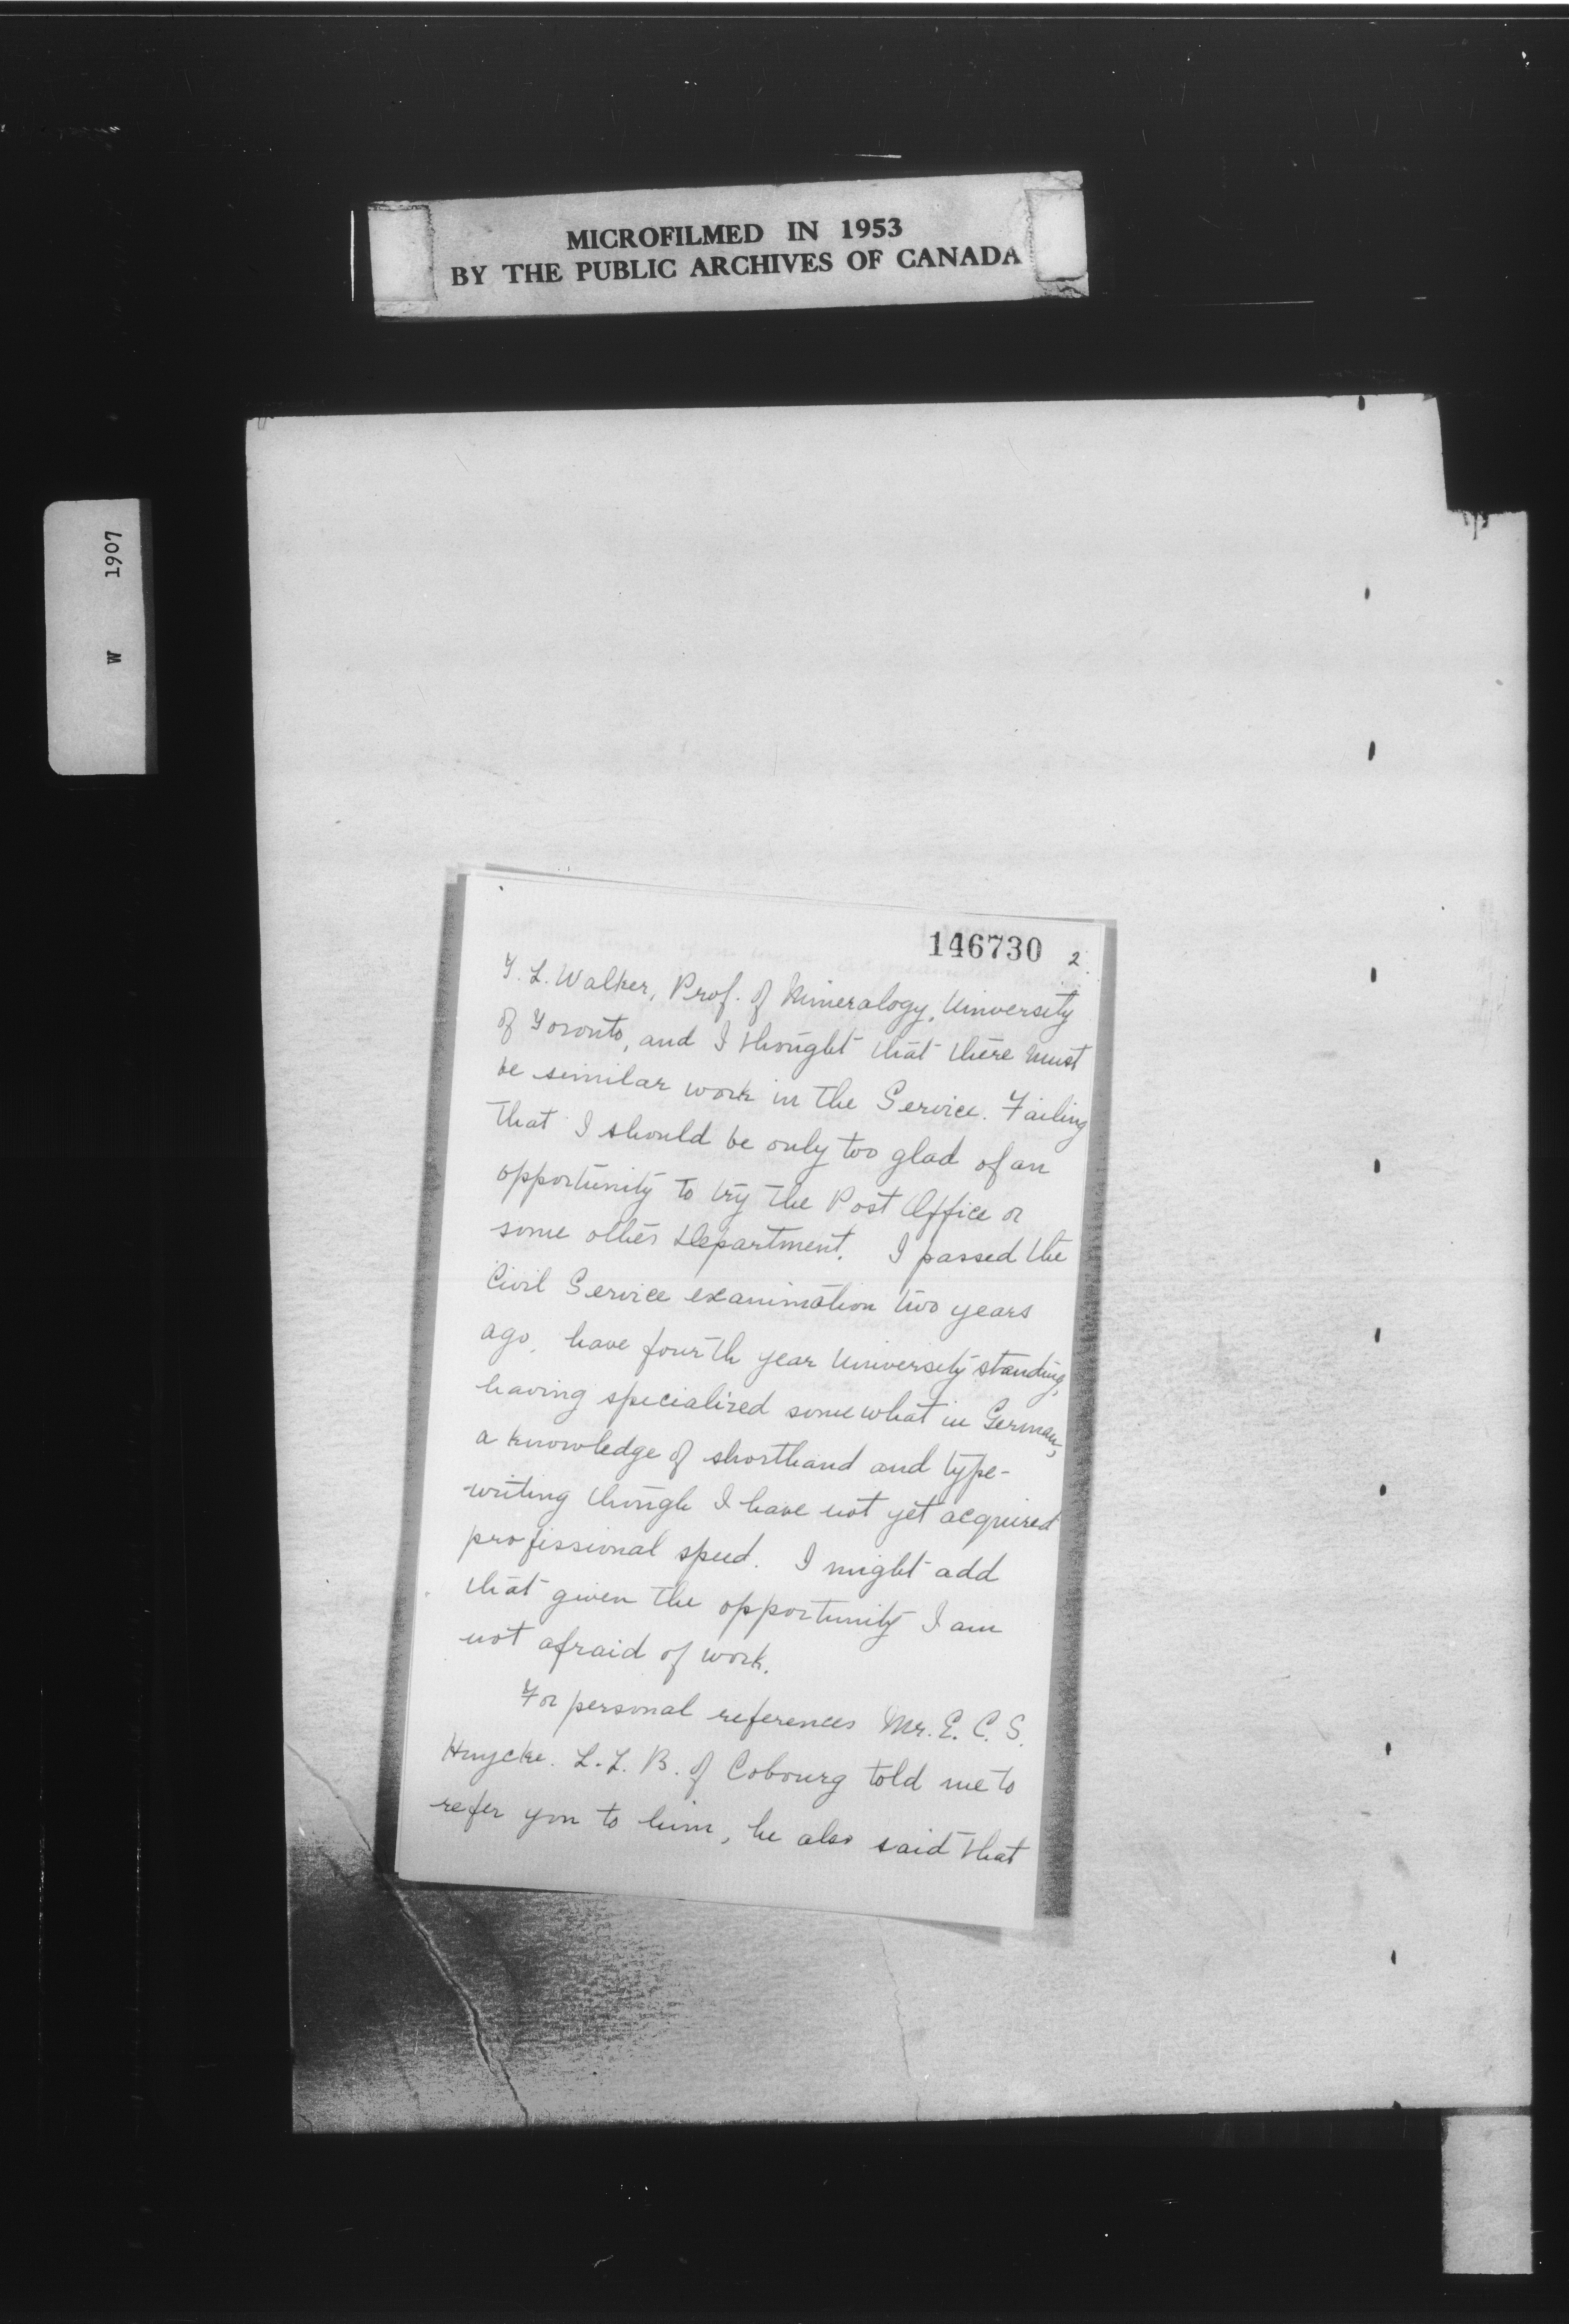 MICROFILMED IN 1953
BY THE PUBLIC ARCHIVES OF CANADA
W 1907
146730 2.
T. L. Walker, Prof. of Mineralogy, University
of Toronto, and I thought that there must
be similar work in the Service. Failing
that I should be only too glad of an
opportunity to try the Post Office or
some other Department. I passed the
Civil Service examination two years
ago, have fourth year University standing,
having specialized somewhat in German,
a knowledge of shorthand and type-
writing though I have not yet acquired
professional speed. I might add
that given the opportunity I am
not afraid of work.
For personal references Mr. E. C. S.
Huycke. L.L.B. of Cobourg told me to
refer you to him, he also said that